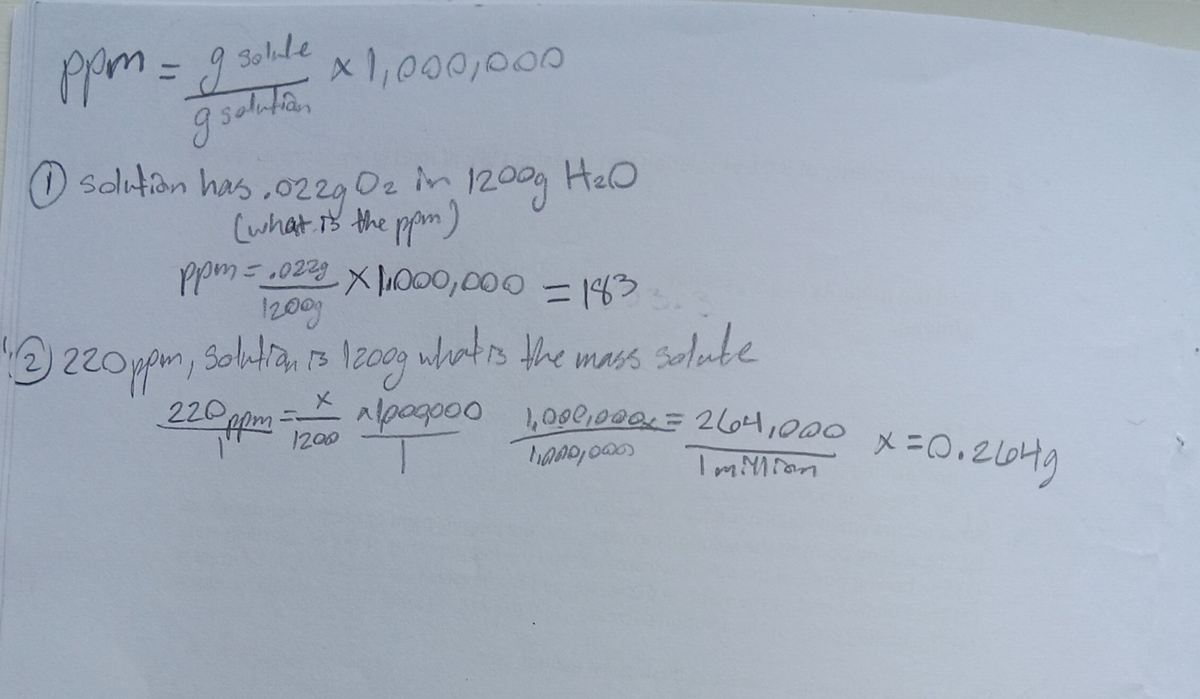 ppm = g solute / g solution × 1,000,000
① solution has .022g O2 in 1200g H2O
(what is the ppm)
ppm = .022g / 1200g × 1,000,000 = 183
② 220ppm, solution is 1200g what is the mass solute
220ppm / 1 = x / 1200 × 1000000 / 1 1,000,000x / 1,000,000 = 264,000 / 1 million x = 0.264g